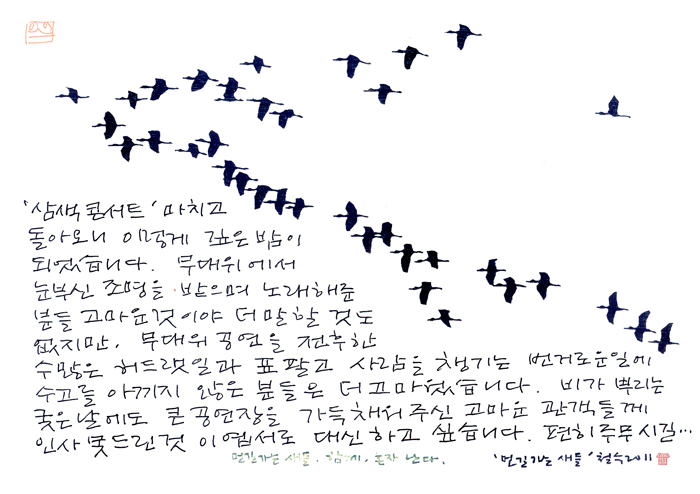 '삼색콘서트' 마치고
돌아오니 이렇게 깊은 밤이
되었습니다. 무대위에서
눈부신 조명을 받으며 노래해준
분들 고마운것이야 더 말할 것도
없지만, 무대위 공연을 전후한
수많은 허드렛일과 표팔고 사람들 챙기는 번거로운일에
수고를 아끼지 않은 분들은 더 고마웠습니다. 비가 뿌리는
궂은 날에도 큰 공연장을 가득채워주신 고마운 관객들께
인사 못드린것 이 엽서로 대신하고 싶습니다. 편히 주무시길…
먼길가는 새들. 함께. 혼자 난다.
'먼길가는 새들' 철수2011